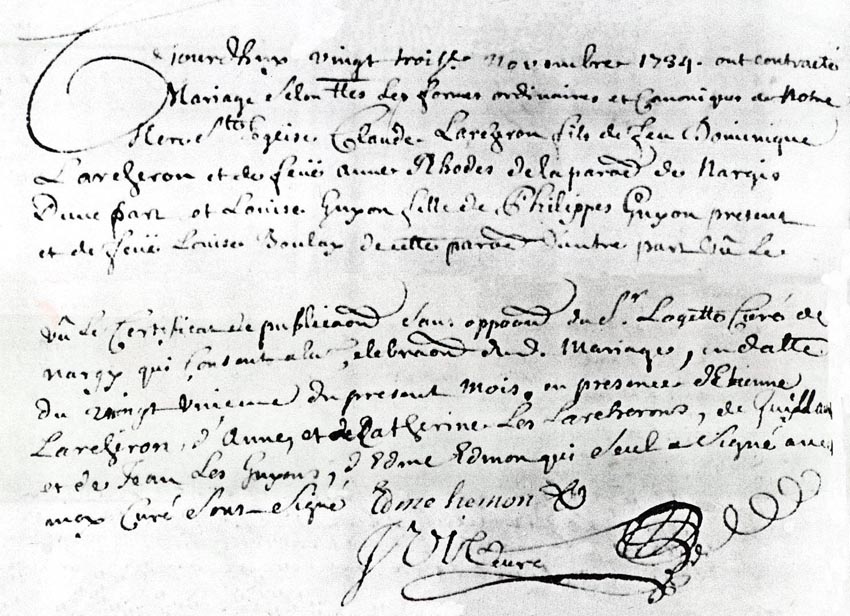 ajourdhuy vingt troisᵉ novembre 1734 ont contracté
Mariage selon les formes ordinaires et Canoniques de Notre
Mere Ste Eglise Claude Larcheron fils de feu Dominique
Larcheron et de feüe Anne Rhodes de la paroᵈ de Nargis
Dune part et Louise Guyon fille de Philippes Guyon present
et de feüe Louise Boulay de cette paroᵈ dautre part Vû Le
vû Le Certificat de publicaoⁿ sans oppoaoⁿ du Sr. Logette Curé de
nargy qui consent a la Celebraoⁿ du d. Mariage, en datte
du vingt unieme du present mois, en presence dEtienne
Larcheron, d'Anne, et de Catherine Les Larcherons, de
et de Jean Les Guyons, d'Edme Edmon qui seul a signé avec
moy Curé sous-signé Edme hemon
Curé